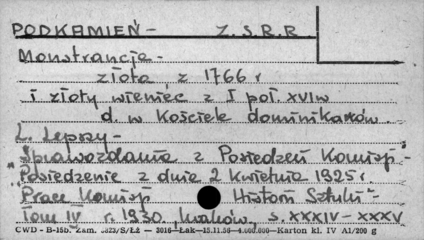 PODKAMIEŃ - Z.S.R.R
Monstrancja -
złota, z 1766 r
i złoty wieniec z I poł. XVIIw
d. w Kościele dominikanów.
L. Lepszy -
"Sprawozdania z Posiedzeń Komisji -
Posiedzenie z dnia 2 kwietnia 1925 r
Prace Komisji Historii Sztuki" -
Tom IV r. 1930. Kraków, s. XXXIV - XXXV
CWD - B-15b. Zam. S/Łż — 3016—Łak—15.11.56—4.000.000—Karton kl. IV A1/200 g